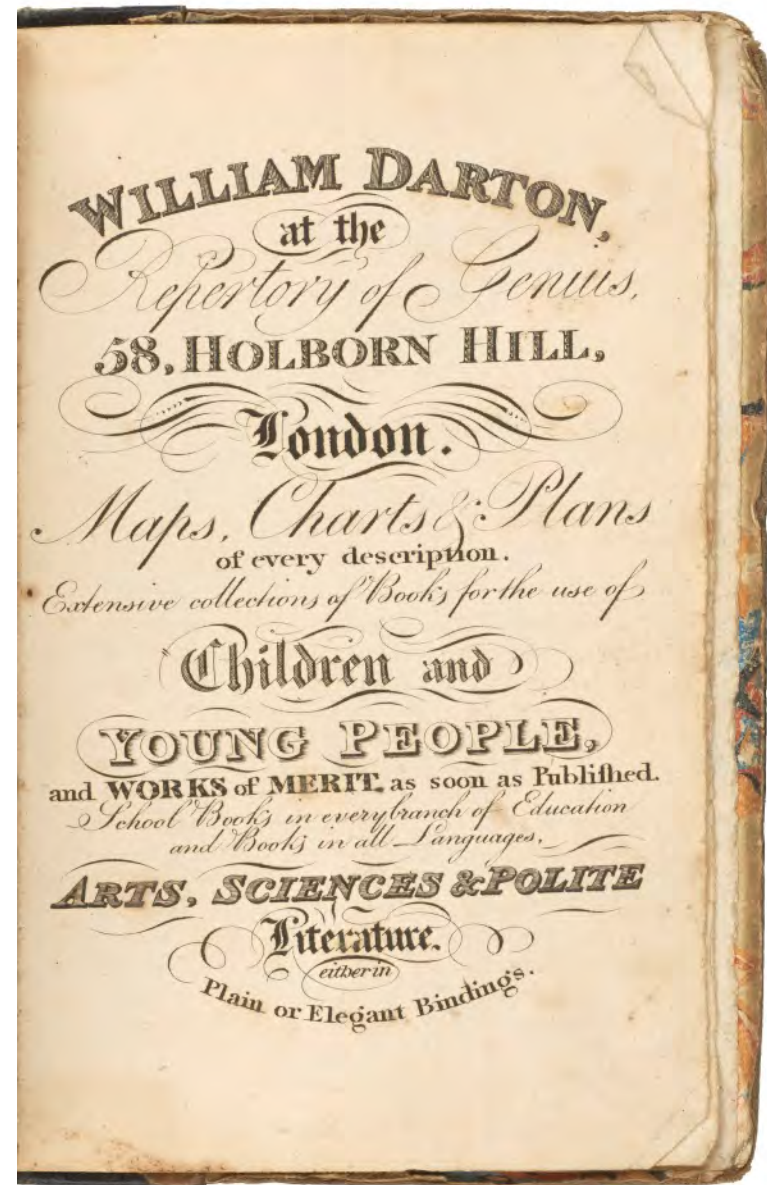 WILLIAM DARTON,
at the
Repertory of Genius,
58, HOLBORN HILL,
London.
Maps, Charts & Plans
of every description.
Extensive collections of Books for the use of
Children and
YOUNG PEOPLE,
and WORKS of MERIT, as soon as Publiſhed.
School Books in every branch of Education
and Books in all Languages,
ARTS, SCIENCES & POLITE
Literature.
either in
Plain or Elegant Bindings.